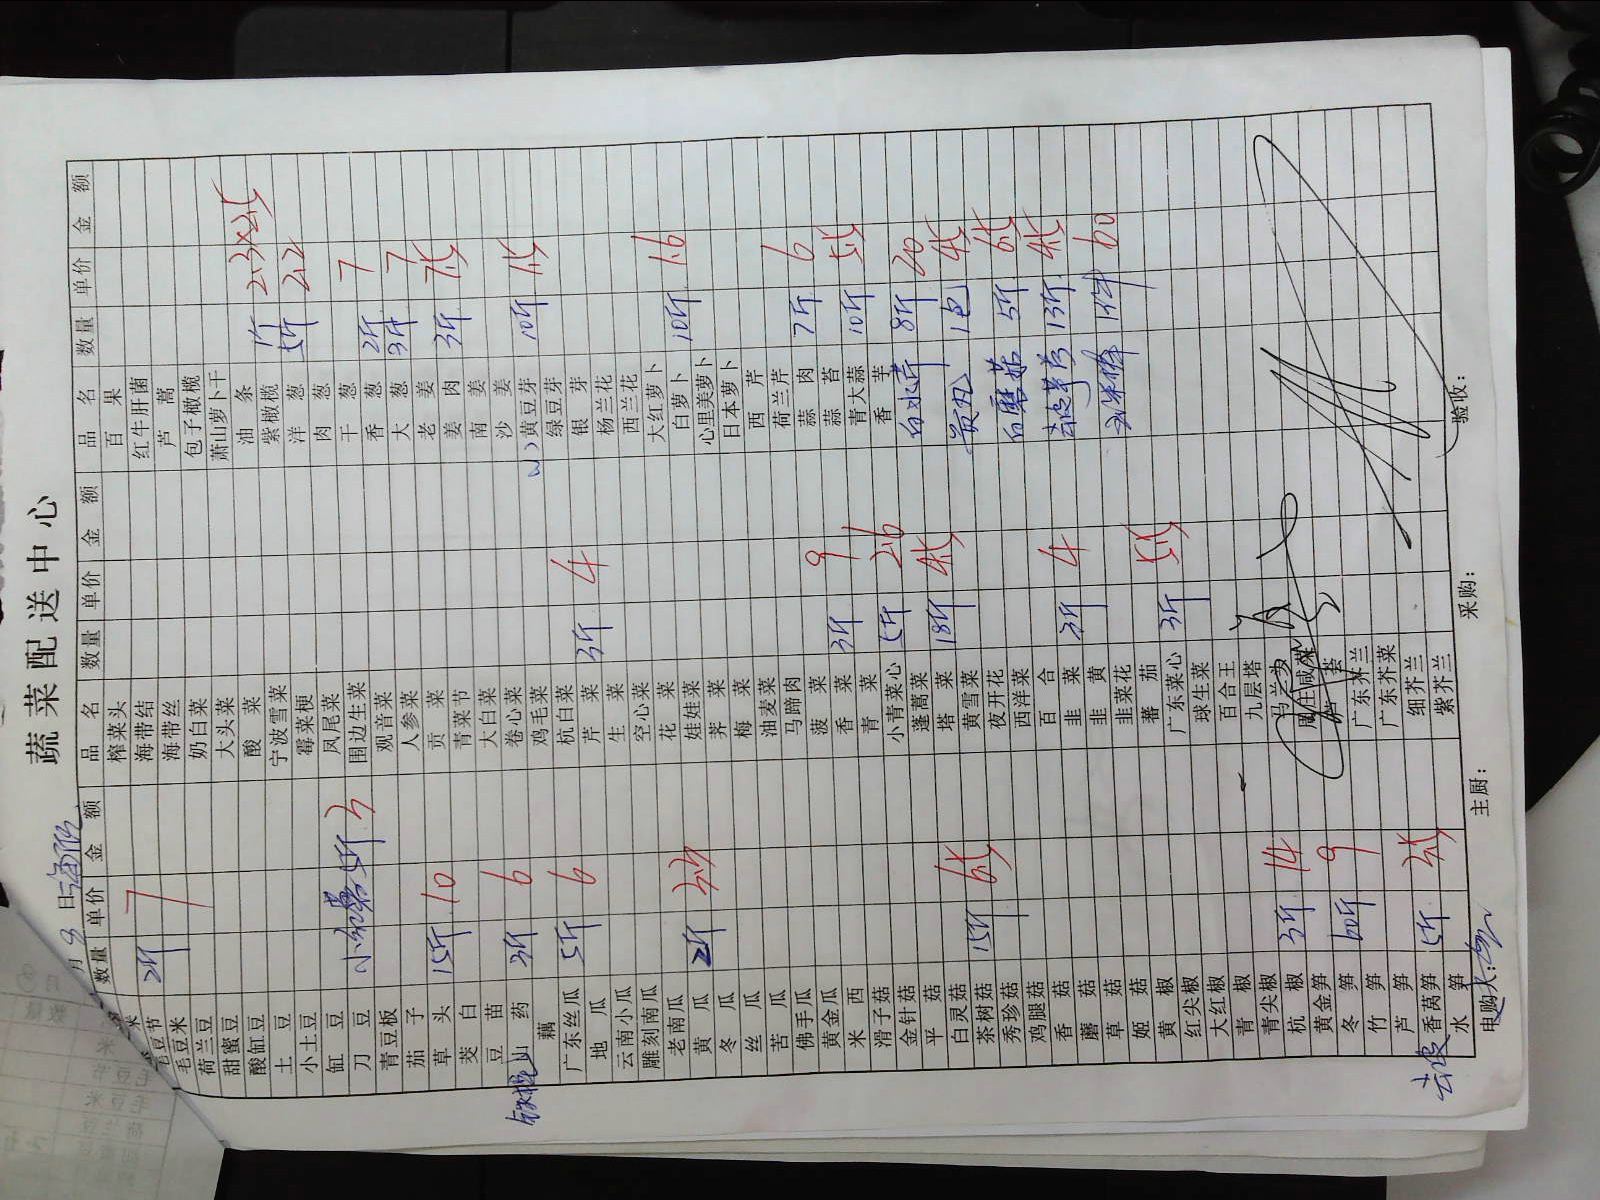 蔬菜配送中心
月 8 日
数量 单价 金额
毛豆节 2斤 7
毛豆米
荷兰豆
甜蜜豆
酸缸豆
土豆
小土豆
缸豆
刀豆 5斤 3
青豆板
茄子
草头 15斤 10
茭白
豆苗
铁棍山药 3斤 6
藕
广东丝瓜 5斤 6
地瓜
云南小瓜
雕刻南瓜
老南瓜
黄瓜 2斤 3.5
冬瓜
丝瓜
苦瓜
佛手瓜
黄金瓜
米西
滑子菇
金针菇
平菇
白灵菇
茶树菇 15斤 6.5
秀珍菇
鸡腿菇
香菇
蘑菇
草菇
姬菇
黄椒
红尖椒
大红椒
青椒
青尖椒
杭椒 3斤 14
黄金笋
冬笋 60斤 9
竹笋
芦笋
去皮香莴笋 5斤 3.5
水笋
品名 数量 单价 金额
榨菜头
海带结
海带丝
奶白菜
大头菜
酸菜
宁波雪菜
霉菜梗
凤尾菜
围边生菜
观音菜
人参菜
贡菜
青菜节
大白菜
卷心菜
鸡毛菜
杭白菜
芹菜 3斤 4
生菜
空心菜
花菜
娃娃菜
荠菜
梅菜
油麦菜
马蹄肉
菠菜
香菜 3斤 9
青菜
小青菜心 5斤 2.6
蓬蒿菜
塔菜 18斤 4.5
黄雪菜
夜开花
西洋菜
百合
韭菜 3斤 4
韭黄
韭菜花
蕃茄
广东菜心 3斤 5.5
球生菜
百合王
九层塔
马兰头
周庄咸菜
广东芥兰
广东芥菜
细芥兰
紫芥兰
品名 数量 单价 金额
百果
红牛肝菌
芦蒿
包子橄榄
萧山萝卜干
油条
紫橄榄 1斤 2.3×2.5
洋葱 5斤 2.2
肉葱
干葱
香葱 2斤 7
大葱 3斤 7
老姜
姜肉 3斤 7.5
南姜
沙姜
黄豆芽 10斤 1.5
绿豆芽
银芽
杨兰花
西兰花
大红萝卜
白萝卜 10斤 1.6
心里美萝卜
日本萝卜
西芹
荷兰芹
蒜肉 7斤 6
蒜苔
青大蒜 10斤 5.5
香芋
白水芹 8斤 20
贡丸 1包 45
白蘑菇 5斤 6.5
去皮芋艿 13斤 4.5
玉米棒 1件 60
申购人:
主厨:
采购:
验收: